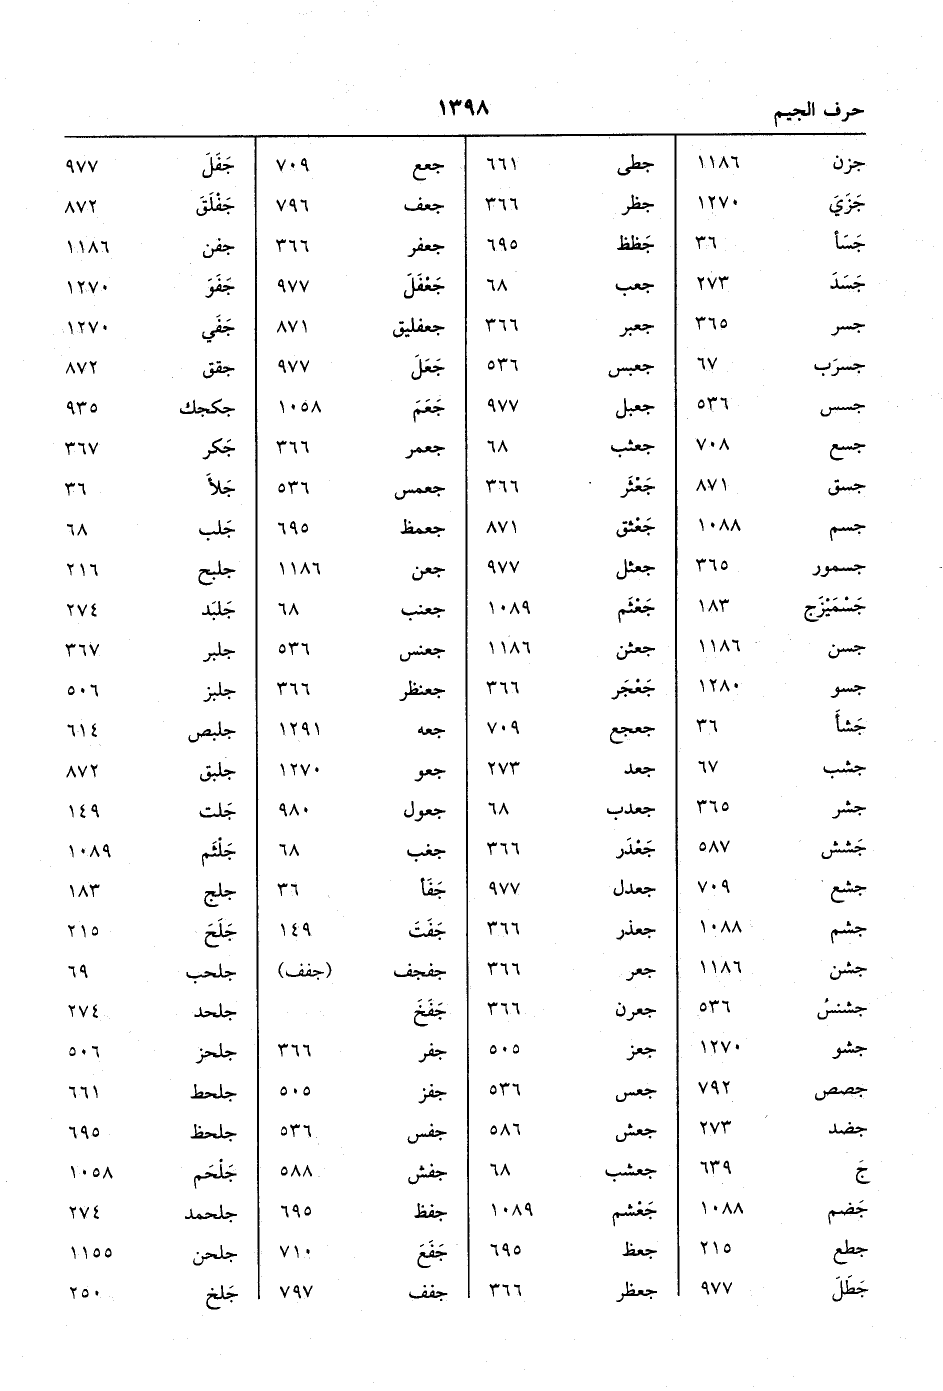 حرف الجيم ١٣٩٨
جزن ١١٨٦
جَزَيَ ١٢٧٠
جَسَأ ٣٦
جَسَدَ ٢٧٣
جسر ٣٦٥
جسرَب ٦٧
جسس ٥٣٦
جسع ٧٠٨
جسق ٨٧١
جسم ١٠٨٨
جسمور ٣٦٥
جَسْمَيْزَج ١٨٣
جسن ١١٨٦
جسو ١٢٨٠
جَشأَ ٣٦
جشب ٦٧
جشر ٣٦٥
جَشش ٥٨٧
جشع ٧٠٩
جشم ١٠٨٨
جشن ١١٨٦
جشنسُ ٥٣٦
جشو ١٢٧٠
جصص ٧٩٢
جضد ٢٧٣
جَ ٦٣٩
جَضم ١٠٨٨
جطع ٢١٥
جَطَلَ ٩٧٧
جطى ٦٦١
جظر ٣٦٦
جَظظ ٦٩٥
جعب ٦٨
جعبر ٣٦٦
جعبس ٥٣٦
جعبل ٩٧٧
جعثب ٦٨
جَعْثَر ٣٦٦
جَعْثق ٨٧١
جعثل ٩٧٧
جَعْثَم ١٠٨٩
جعثن ١١٨٦
جَعْجَر ٣٦٦
جعجع ٧٠٩
جعد ٢٧٣
جعدب ٦٨
جَعْدَر ٣٦٦
جعدل ٩٧٧
جعذر ٣٦٦
جعر ٣٦٦
جعرن ٣٦٦
جعز ٥٠٥
جعس ٥٣٦
جعش ٥٨٦
جعشب ٦٨
جَعْشم ١٠٨٩
جعظ ٦٩٥
جعظر ٣٦٦
جعع ٧٠٩
جعف ٧٩٦
جعفر ٣٦٦
جَعْفَلَ ٩٧٧
جعفليق ٨٧١
جَعَلَ ٩٧٧
جَعَمَ ١٠٥٨
جعمر ٣٦٦
جعمس ٥٣٦
جعمظ ٦٩٥
جعن ١١٨٦
جعنب ٦٨
جعنس ٥٣٦
جعنظر ٣٦٦
جعه ١٢٩١
جعو ١٢٧٠
جعول ٩٨٠
جغب ٦٨
جَفَأ ٣٦
جَفَتَ ١٤٩
جفجف (جفف)
جَفَخَ
جفر ٣٦٦
جفز ٥٠٥
جفس ٥٣٦
جفش ٥٨٨
جفظ ٦٩٥
جَفَعَ ٧١٠
جفف ٧٩٧
جَفَلَ ٩٧٧
جَفْلَقَ ٨٧٢
جفن ١١٨٦
جَفَوَ ١٢٧٠
جَفَي ١٢٧٠
جقق ٨٧٢
جكجك ٩٣٥
جَكر ٣٦٧
جَلأَ ٣٦
جَلب ٦٨
جلبح ٢١٦
جَلبَد ٢٧٤
جلبر ٣٦٧
جلبز ٥٠٦
جلبص ٦١٤
جلبق ٨٧٢
جَلت ١٤٩
جَلْثَم ١٠٨٩
جلج ١٨٣
جَلَحَ ٢١٥
جلحب ٦٩
جلحد ٢٧٤
جلحز ٥٠٦
جلحط ٦٦١
جلحظ ٦٩٥
جَلْحَم ١٠٥٨
جلحمد ٢٧٤
جلحن ١١٥٥
جَلخ ٢٥٠